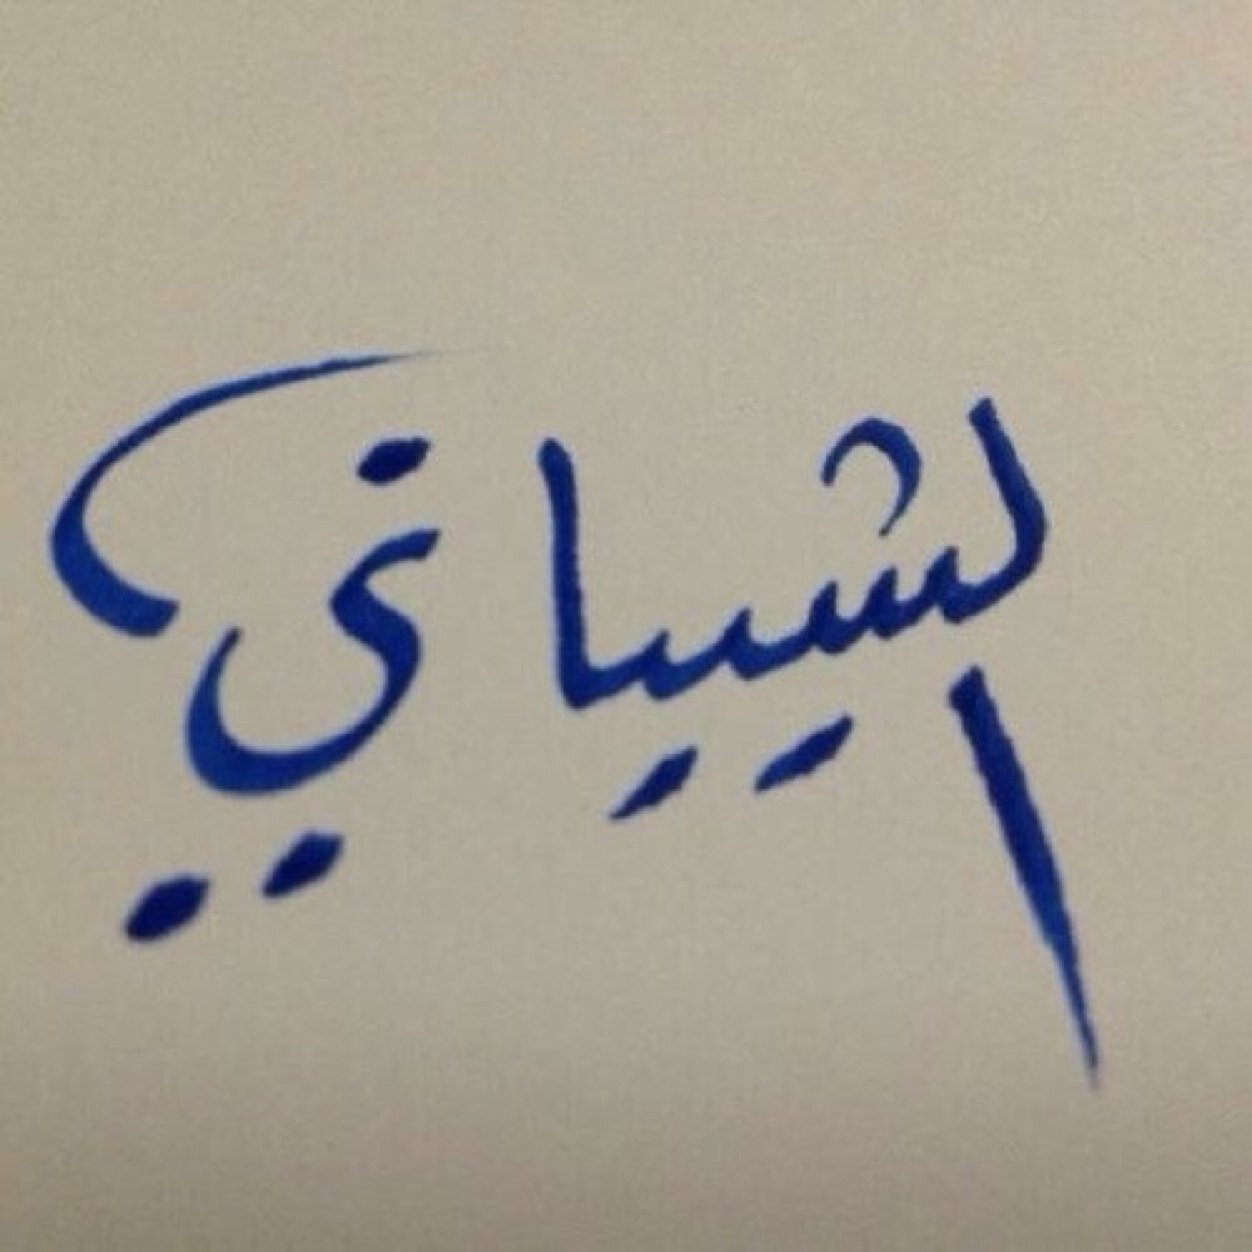 الشيباني